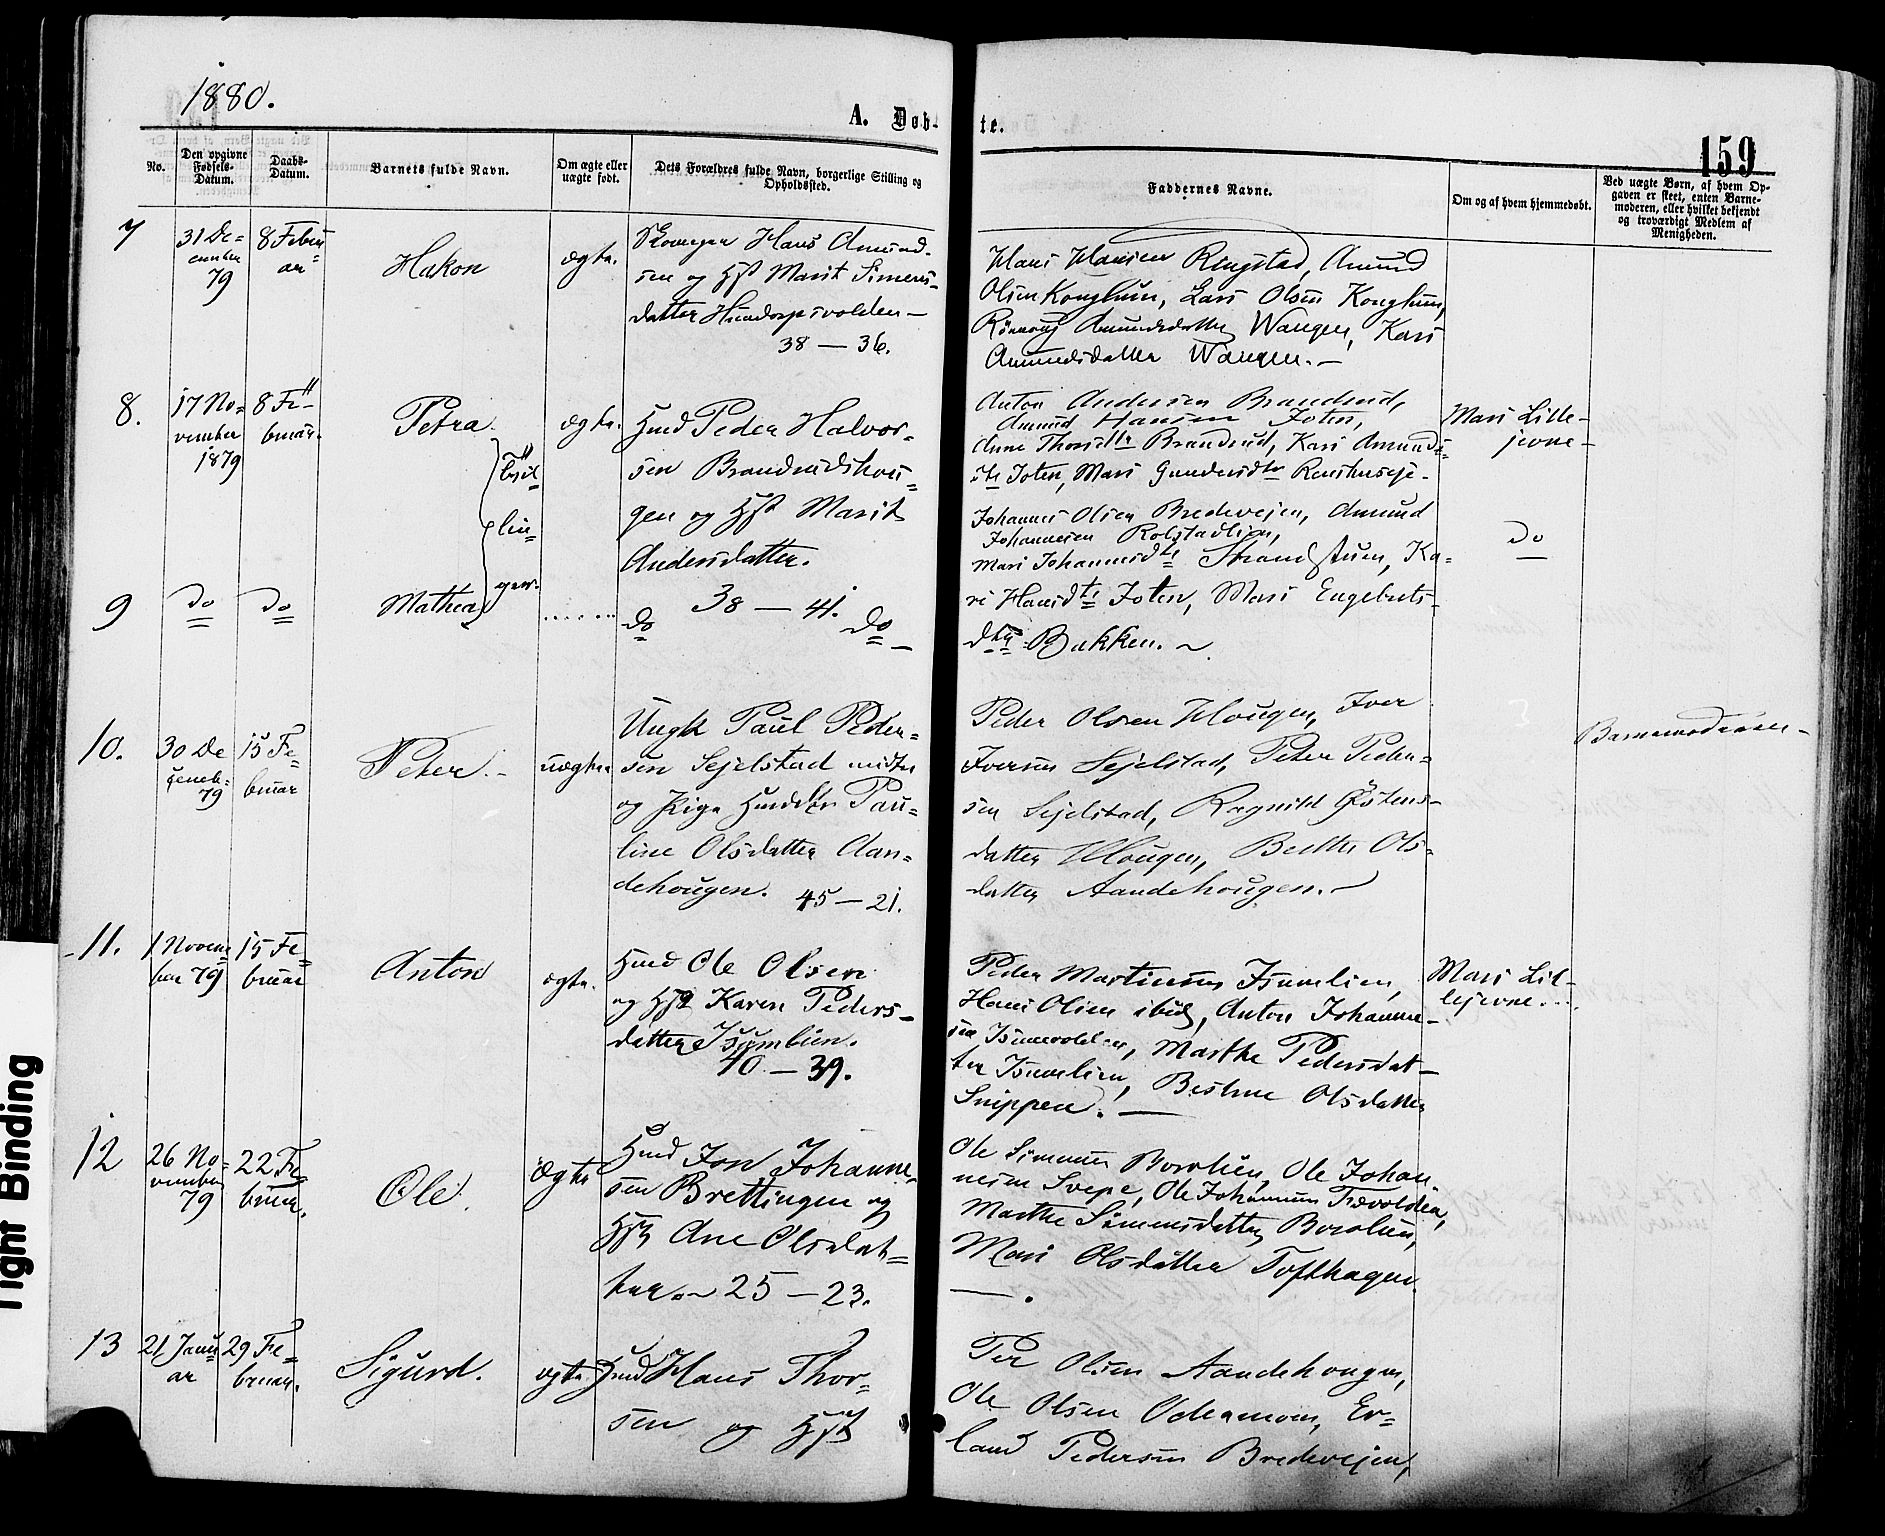 1880.
A. Døb-
te.
159
No.
Den opgivne
Fødsels-
Datum.
Daabs-
Datum.
Barnets fulde Navn.
Om ægte eller
uægte født.
Dets Forældres fulde Navn, borgerlige Stilling og
Opholdssted.
Faddernes Navne.
Om og af hvem hjemmedøbt.
Ved uægte Børn, af hvem Op-
gaven er skeet, enten Barne-
moderen, eller hvilket bekjendt
og troværdigt Medlem af
Menigheden.
7
31 De-
cember
79
8 Febru
ar
Hakon
ægte.
Hans Amund-
sen og Hst Marit Simens-
datter Hundorpsvolden —
38 — 36.
Hans Hansen Ringstad, Amund
Olsen Konghun, Lars Olsen Konghun,
Rønnoug Amundsdatter Wangen, Kari
Amundsdatter Wangen. —
8.
17 No-
vember
1879
8 Fe-
bruar.
Petra.
Tvil-
lin-
ger.
ægte.
Hmd Peder Halvor-
sen Brandrudshou-
gen og Hst Marit
Andersdatter.
38 — 41.
Anton Andersen Brandrud,
Amund Hansen Joten,
Anne Thorsdtr Brandrud, Kari Amunds-
dtr Joten, Mari Gundersdtr
Mari Lille-
jevne —
9
do
do
Mathea
......
do
do —
Johannes Olsen Bredevejen, Amund
Johannesen Rolstadlien,
Mari Johannesdtr Strandstuen, Ka-
ri Hansdtr Joten, Mari Engebrets-
dtr Bakken. ~
do
10.
30 De
cemb-
79
15 Fe-
bruar
Peter. -
uægte
Ungk Paul Peder-
sen Sejelstad
og Pige Paul-
line Olsdatter Aan-
dehougen. 45 — 21.
Peder Olsen Hougen, Iver
Iversen Sejelstad, Peter Peder-
sen Sejelstad, Ragnild Østens-
datter Hougen, Berthe Ols-
datter Aandehougen. —
Barnemoderen —
11.
1 Novem
ber 79
15 Fe-
bruar
Anton
ægte.
Hmd Ole Olsen
og Hst Karen Peders-
datter Isumlien.
40 — 39.
Peder Martinsen Isumlien,
Hans Olsen ibid, Anton Johanne-
sen Isumvolden, Marthe Pedersdat-
ter Isumlien, Olsdatter
Snippen. —
Mari Lil-
lejevne. ..
12
26 No-
vember
79
22 Fe
bruar.
Ole.
ægte
Hmd Jon Johanne-
sen Brettingen og
Hst Ane Olsdat-
ter. ~ 25 — 23.
Ole Simensen Borolien, Ole Johan-
nesen Svepe, Ole Johannesen Trævolden,
Marthe Simensdatter Borolien,
Mari Olsdatter Tofthagen.
— .
13
21 Janu
ar
29 Fe-
bruar.
Sigurd.
ægte.
Hmd Hans Thor-
sen og Hst
Per Olsen Aandehougen,
Ole Olsen Er-
land Pedersen Bredevejen,
Tight Binding